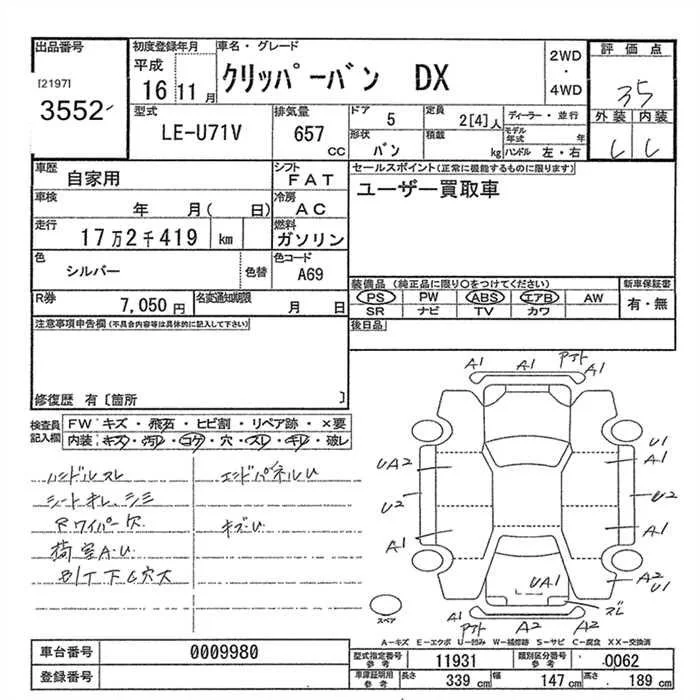 出品番号
[2197]
3552
初度登録年月
平成
16 11月
車名・グレード
クリッパーバン DX
2WD
・
4WD
評価点
3.5
外装 内装
型式
LE-U71V
排気量
657
CC
ドア 5
定員 2[4]人
形状 バン
積載 kg
ディーラー・並行
モデル年式 年
ハンドル 左・右
車歴 自家用
シフト FAT
車検 年 月( 日)
冷房 AC
走行 17万2千419 km
燃料 ガソリン
色 シルバー
色替
色コード A69
R券 7,050円
名変通知期限 月 日
セールスポイント(正常に機能するものに限ります)
ユーザー買取車
装備品 (純正品に限り○をつけてください)
新車保証書
PS PW ABS エアB AW
有・無
SR ナビ TV カワ
後日品
注意事項申告欄(不具合内容等は具体的に記入して下さい)
修復歴 有〔箇所 〕
検査員記入欄
FW キズ・飛石・ヒビ割・リペア跡・×要
内装 キズ・汚レ・コゲ・穴・スレ・キレ・破レ
ハンドルスレ
シートオレ、シミ
Rワイパー欠
荷室A.U
エンドパネルU
キズU
A1 A1 アト A1
UA2
U2
A1
U1
A1
U2
A1
A2
U1
UA1
ズレ
A1
アト A2 A2
スペア
A-キズ E-エクボ U-凹み W-補修跡 S-サビ C-腐食 XX-交換済
車台番号 0009980
登録番号
型式指定番号 参考 11931
類別区分番号 参考 0062
車庫証明用 参考 長さ 339 cm 幅 147 cm 高さ 189 cm